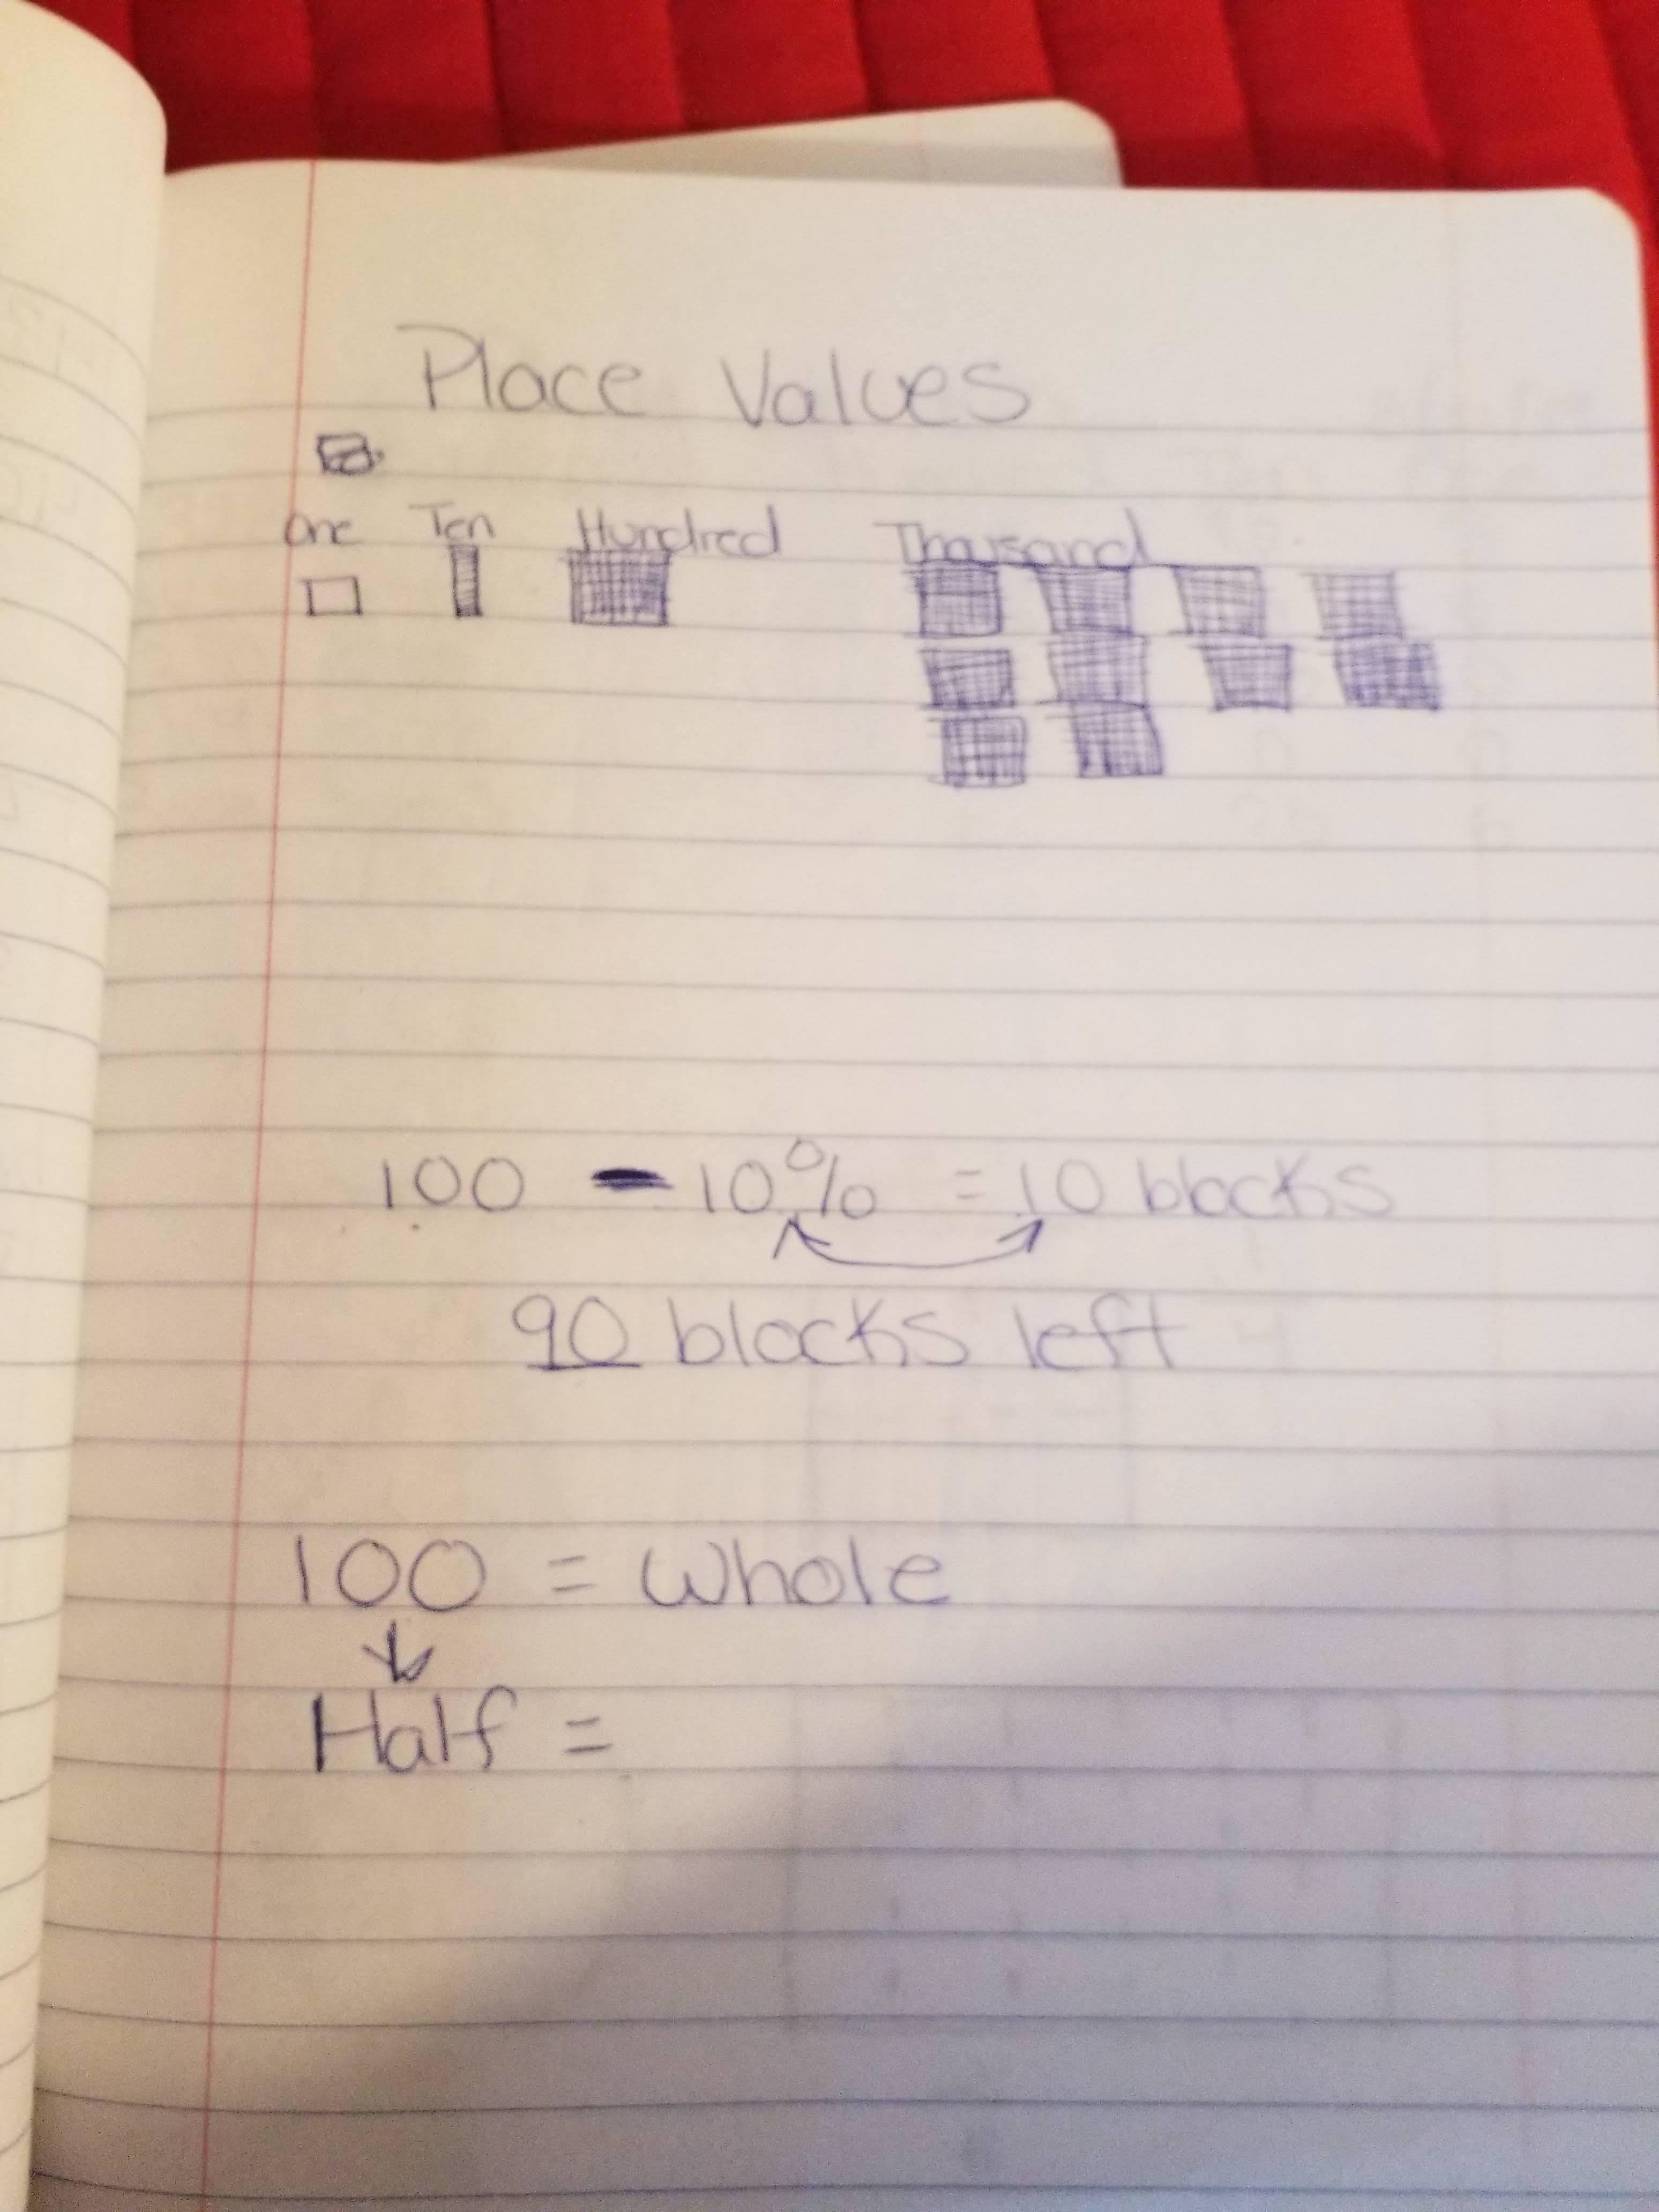 Place Values
One Ten Hundred Thousand
100 - 10% = 10 blocks
90 blocks left
100 = Whole
Half =